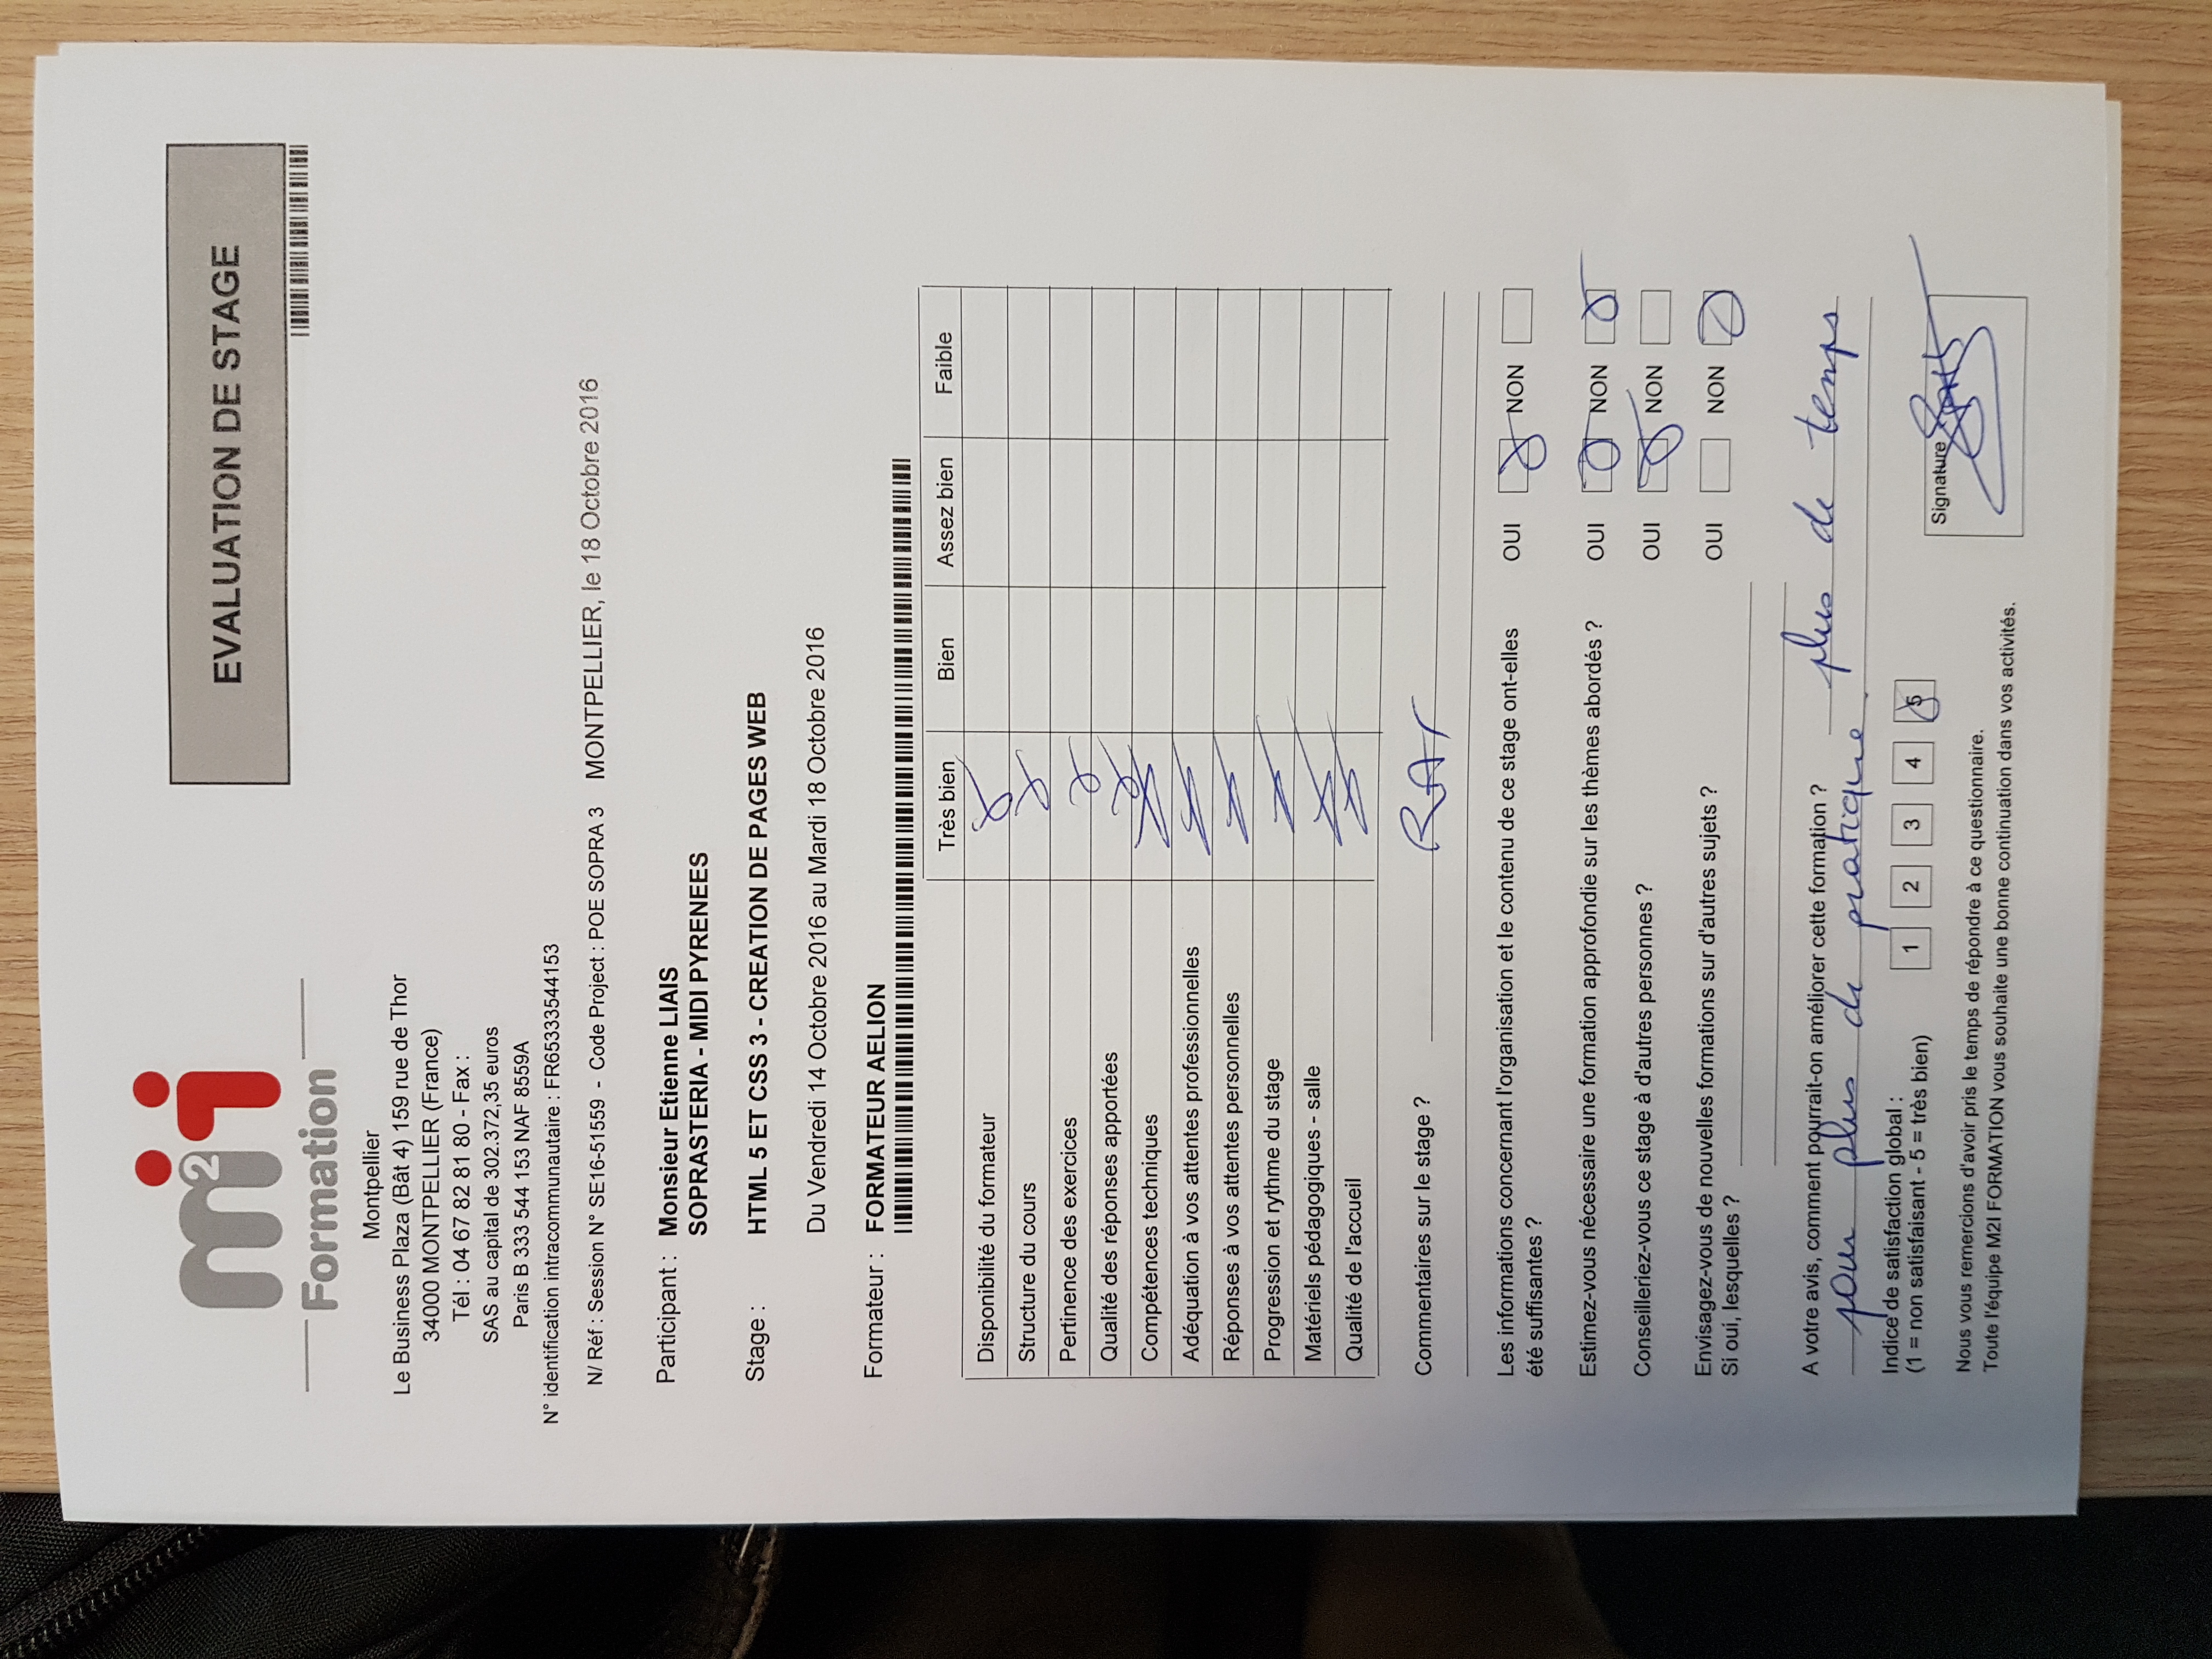 m2i
Formation
EVALUATION DE STAGE
Montpellier
Le Business Plaza (Bât 4) 159 rue de Thor
34000 MONTPELLIER (France)
Tél : 04 67 82 81 80 - Fax :
SAS au capital de 302.372,35 euros
Paris B 333 544 153 NAF 8559A
N° identification intracommunautaire : FR65333544153
N/ Réf : Session N° SE16-51559 - Code Project : POE SOPRA 3 MONTPELLIER, le 18 Octobre 2016
Participant : Monsieur Etienne LIAIS
SOPRASTERIA - MIDI PYRENEES
Stage : HTML 5 ET CSS 3 - CREATION DE PAGES WEB
Du Vendredi 14 Octobre 2016 au Mardi 18 Octobre 2016
Formateur : FORMATEUR AELION
Très bien Bien Assez bien Faible
Disponibilité du formateur
Structure du cours
Pertinence des exercices
Qualité des réponses apportées
Compétences techniques
Adéquation à vos attentes professionnelles
Réponses à vos attentes personnelles
Progression et rythme du stage
Matériels pédagogiques - salle
Qualité de l'accueil
Commentaires sur le stage ?
Les informations concernant l'organisation et le contenu de ce stage ont-elles OUI NON
été suffisantes ?
Estimez-vous nécessaire une formation approfondie sur les thèmes abordés ? OUI NON
Conseilleriez-vous ce stage à d'autres personnes ? OUI NON
Envisagez-vous de nouvelles formations sur d'autres sujets ? OUI NON
Si oui, lesquelles ?
A votre avis, comment pourrait-on améliorer cette formation ? plus de temps
pour plus de pratique.
Indice de satisfaction global :
(1 = non satisfaisant - 5 = très bien) 1 2 3 4 5
Signature
Nous vous remercions d'avoir pris le temps de répondre à ce questionnaire.
Toute l'équipe M2I FORMATION vous souhaite une bonne continuation dans vos activités.